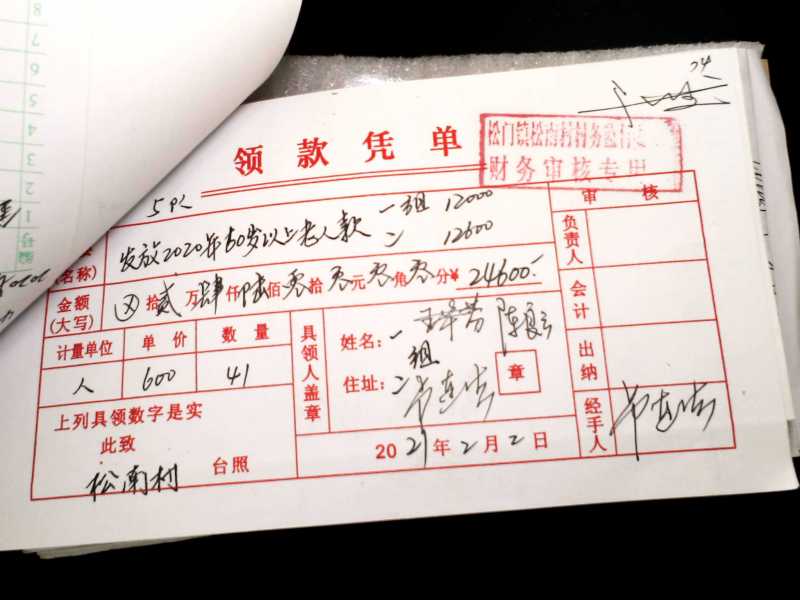 领款凭单
松门镇松南村村务监
财务审核专用
发放2020年60岁以上老人款 一组 12000
二 12600
(名称)
金额(大写) 拾贰万肆仟陆佰零拾零元零角零分¥24600.-
计量单位 单价 数量
人 600 41
上列具领数字是实
此致
松南村 台照
具领人盖章
姓名:一
组
住址:二
章
2021年2月2日
审核
负责人
会计
出纳
经手人
8
7
6
5
4
3
2
1
编号